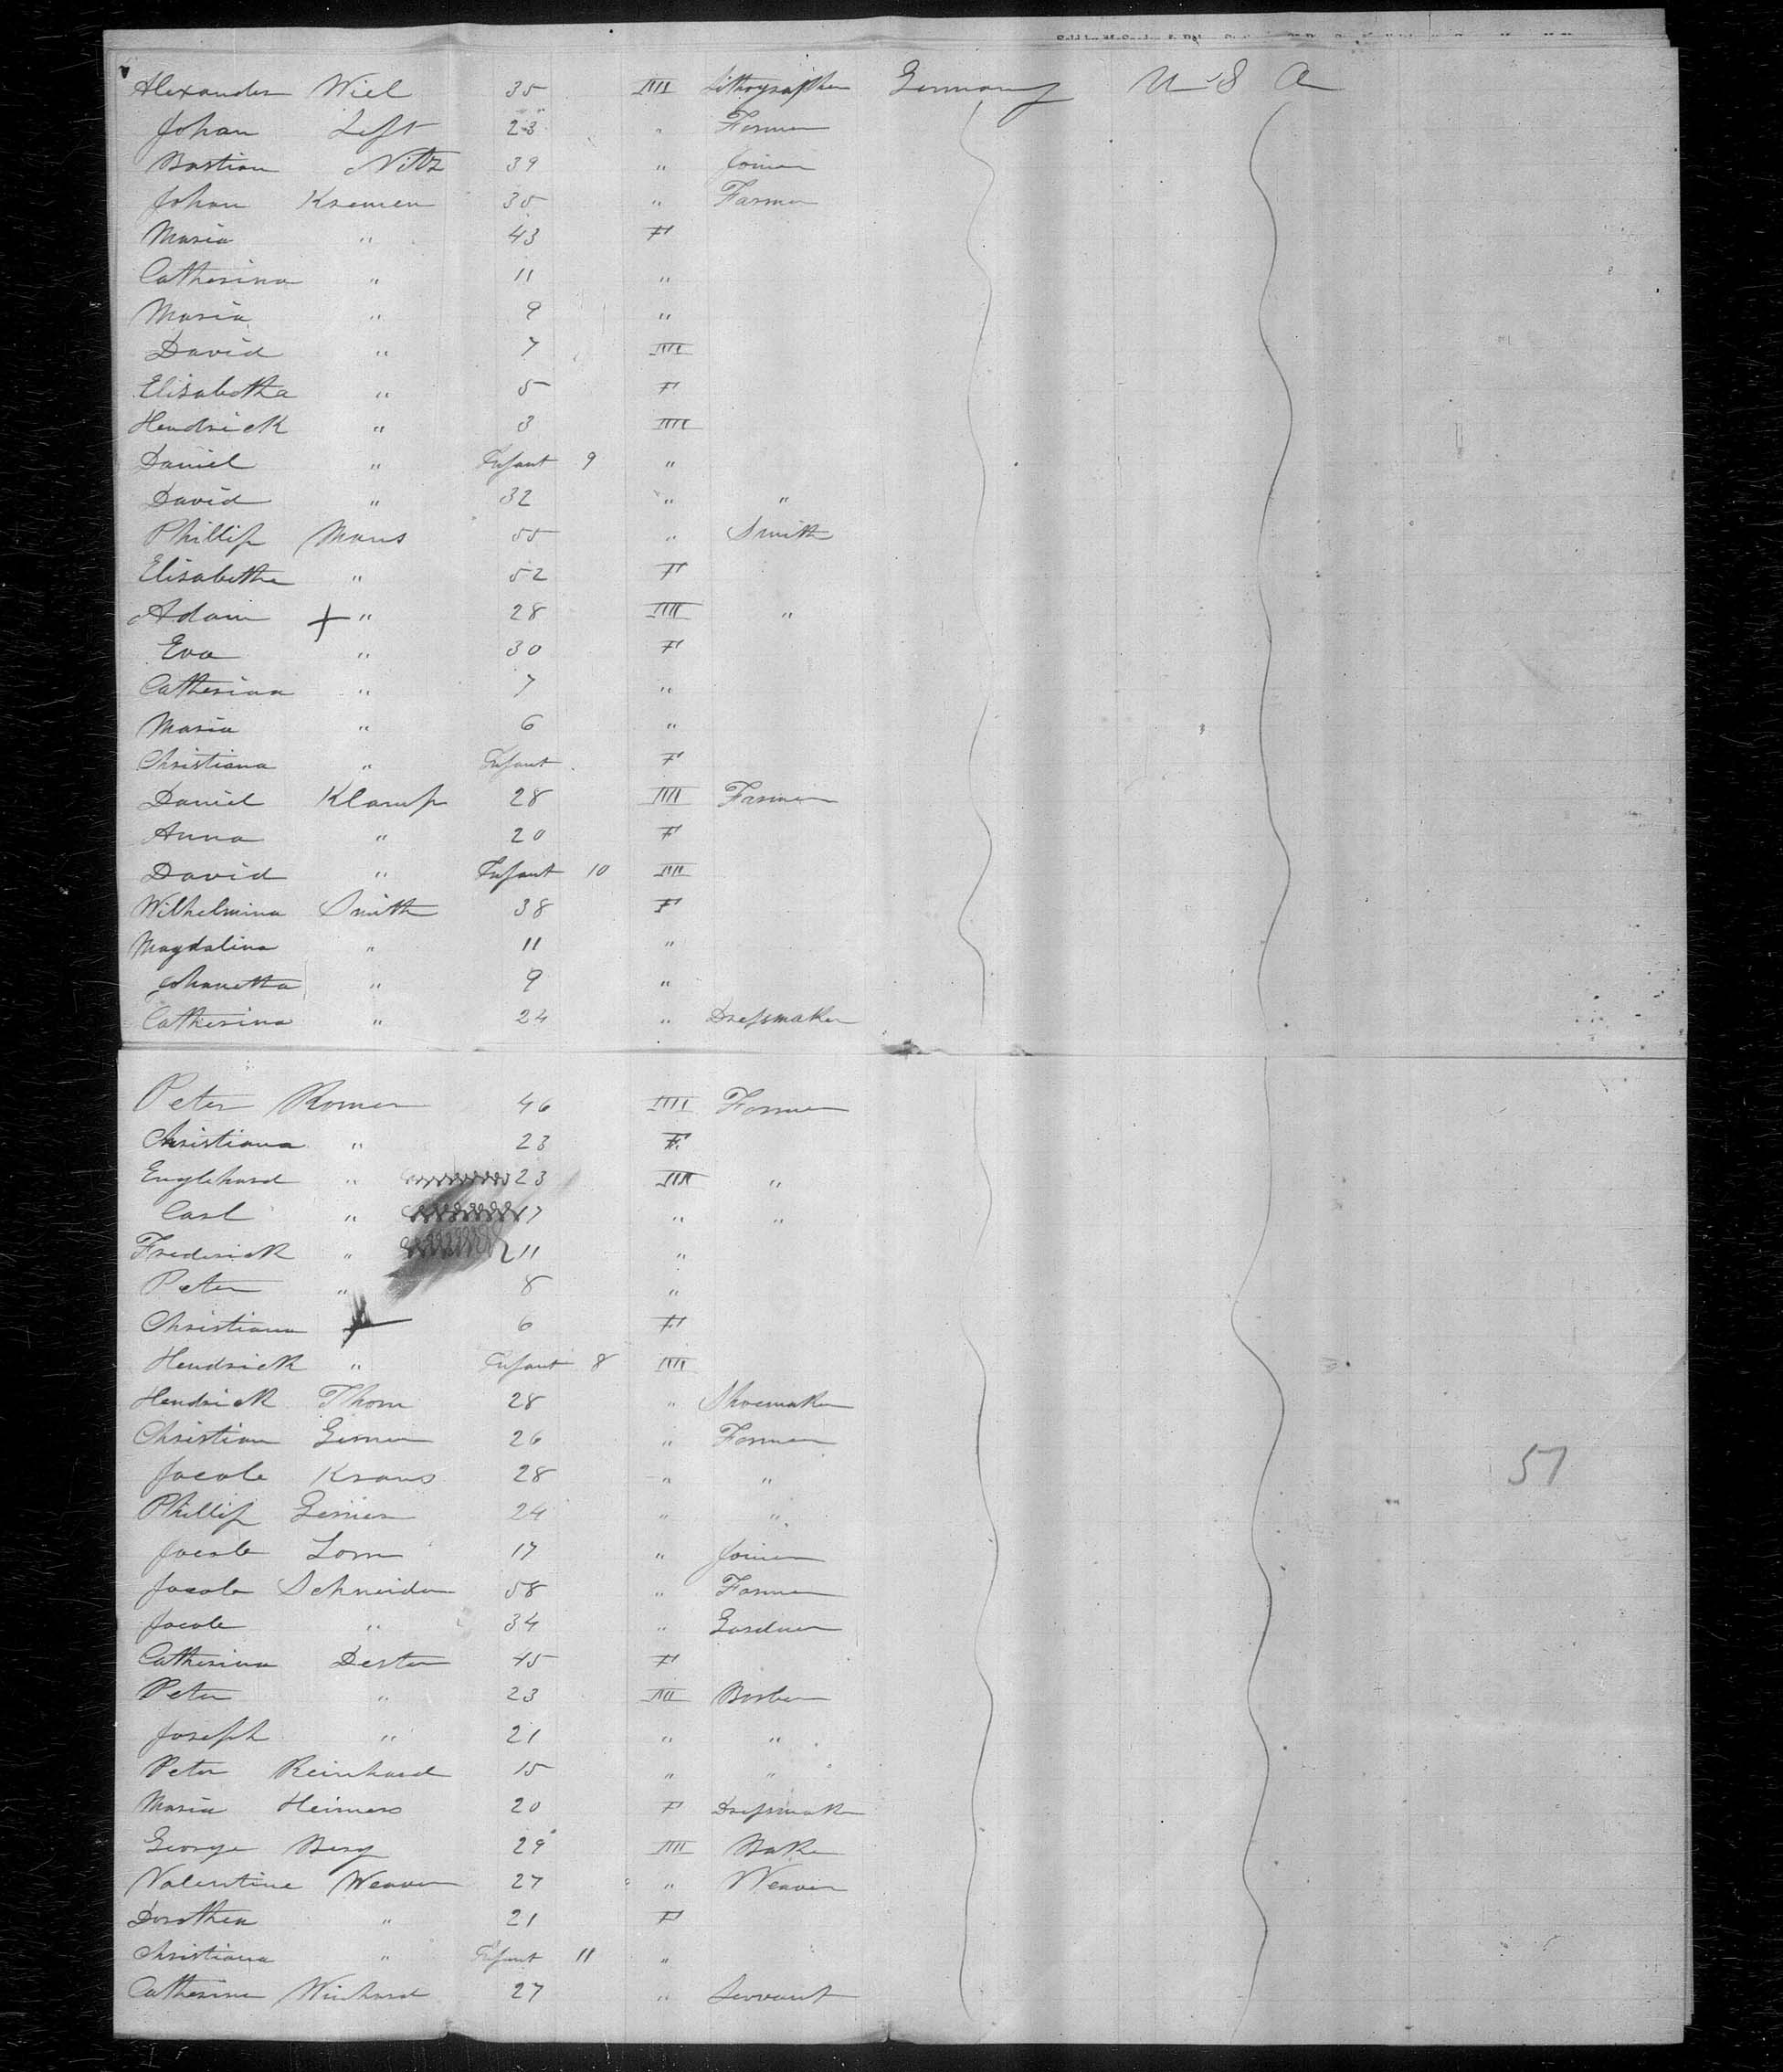 Alexander Wiel 35 M Lithographer Germany U S A
Johan Left 23 " Farmer
Bastian Nitz 39 " Joiner
Johan Kremer 35 " Farmer
Maria " 43 F
Catherina " 11 "
Maria " 9 "
David " 7 M
Elisabetha " 5 F
Hendrick " 3 M
Daniel " Infant 9 "
David " 32 " "
Phillip Maus 55 " Smith
Elisabetha " 52 F
Adam + " 28 M "
Eva " 30 F
Catherina " 7 "
Maria " 6 "
Christiana " Infant F
Daniel Klamp 28 M Farmer
Anna " 20 F
David " Infant 10 M
Wilhelmina Smith 38 F
Magdalina " 11 "
Johanetta " 9 "
Catherina " 24 " Dressmaker
Peter Romer 46 M Farmer
Christiana " 23 F
Englehard " 23 M "
Carl " 17 " "
Frederick " 11 "
Peter " 8 "
Christiana 6 F
Hendrick " Infant 8 M
Hendrick Thom 28 " Shoemaker
Christian 26 " Farmer
Jacob Kraus 28 " "
Phillip 24 " "
Jacob 17 " Joiner
Jacob Schneider 58 " Farmer
Jacob " 34 " Gardner
Catherina Dester 45 F
Peter " 23 M Barber
Joseph " 21 " "
Peter Reinhard 15 " "
Maria Heimers 20 F Dressmaker
George Berg 29 M Baker
Valentine Weaver 27 " Weaver
Dorothea " 21 F
Christiana " Infant 11 "
Catherine Winhard 27 " Servant
51